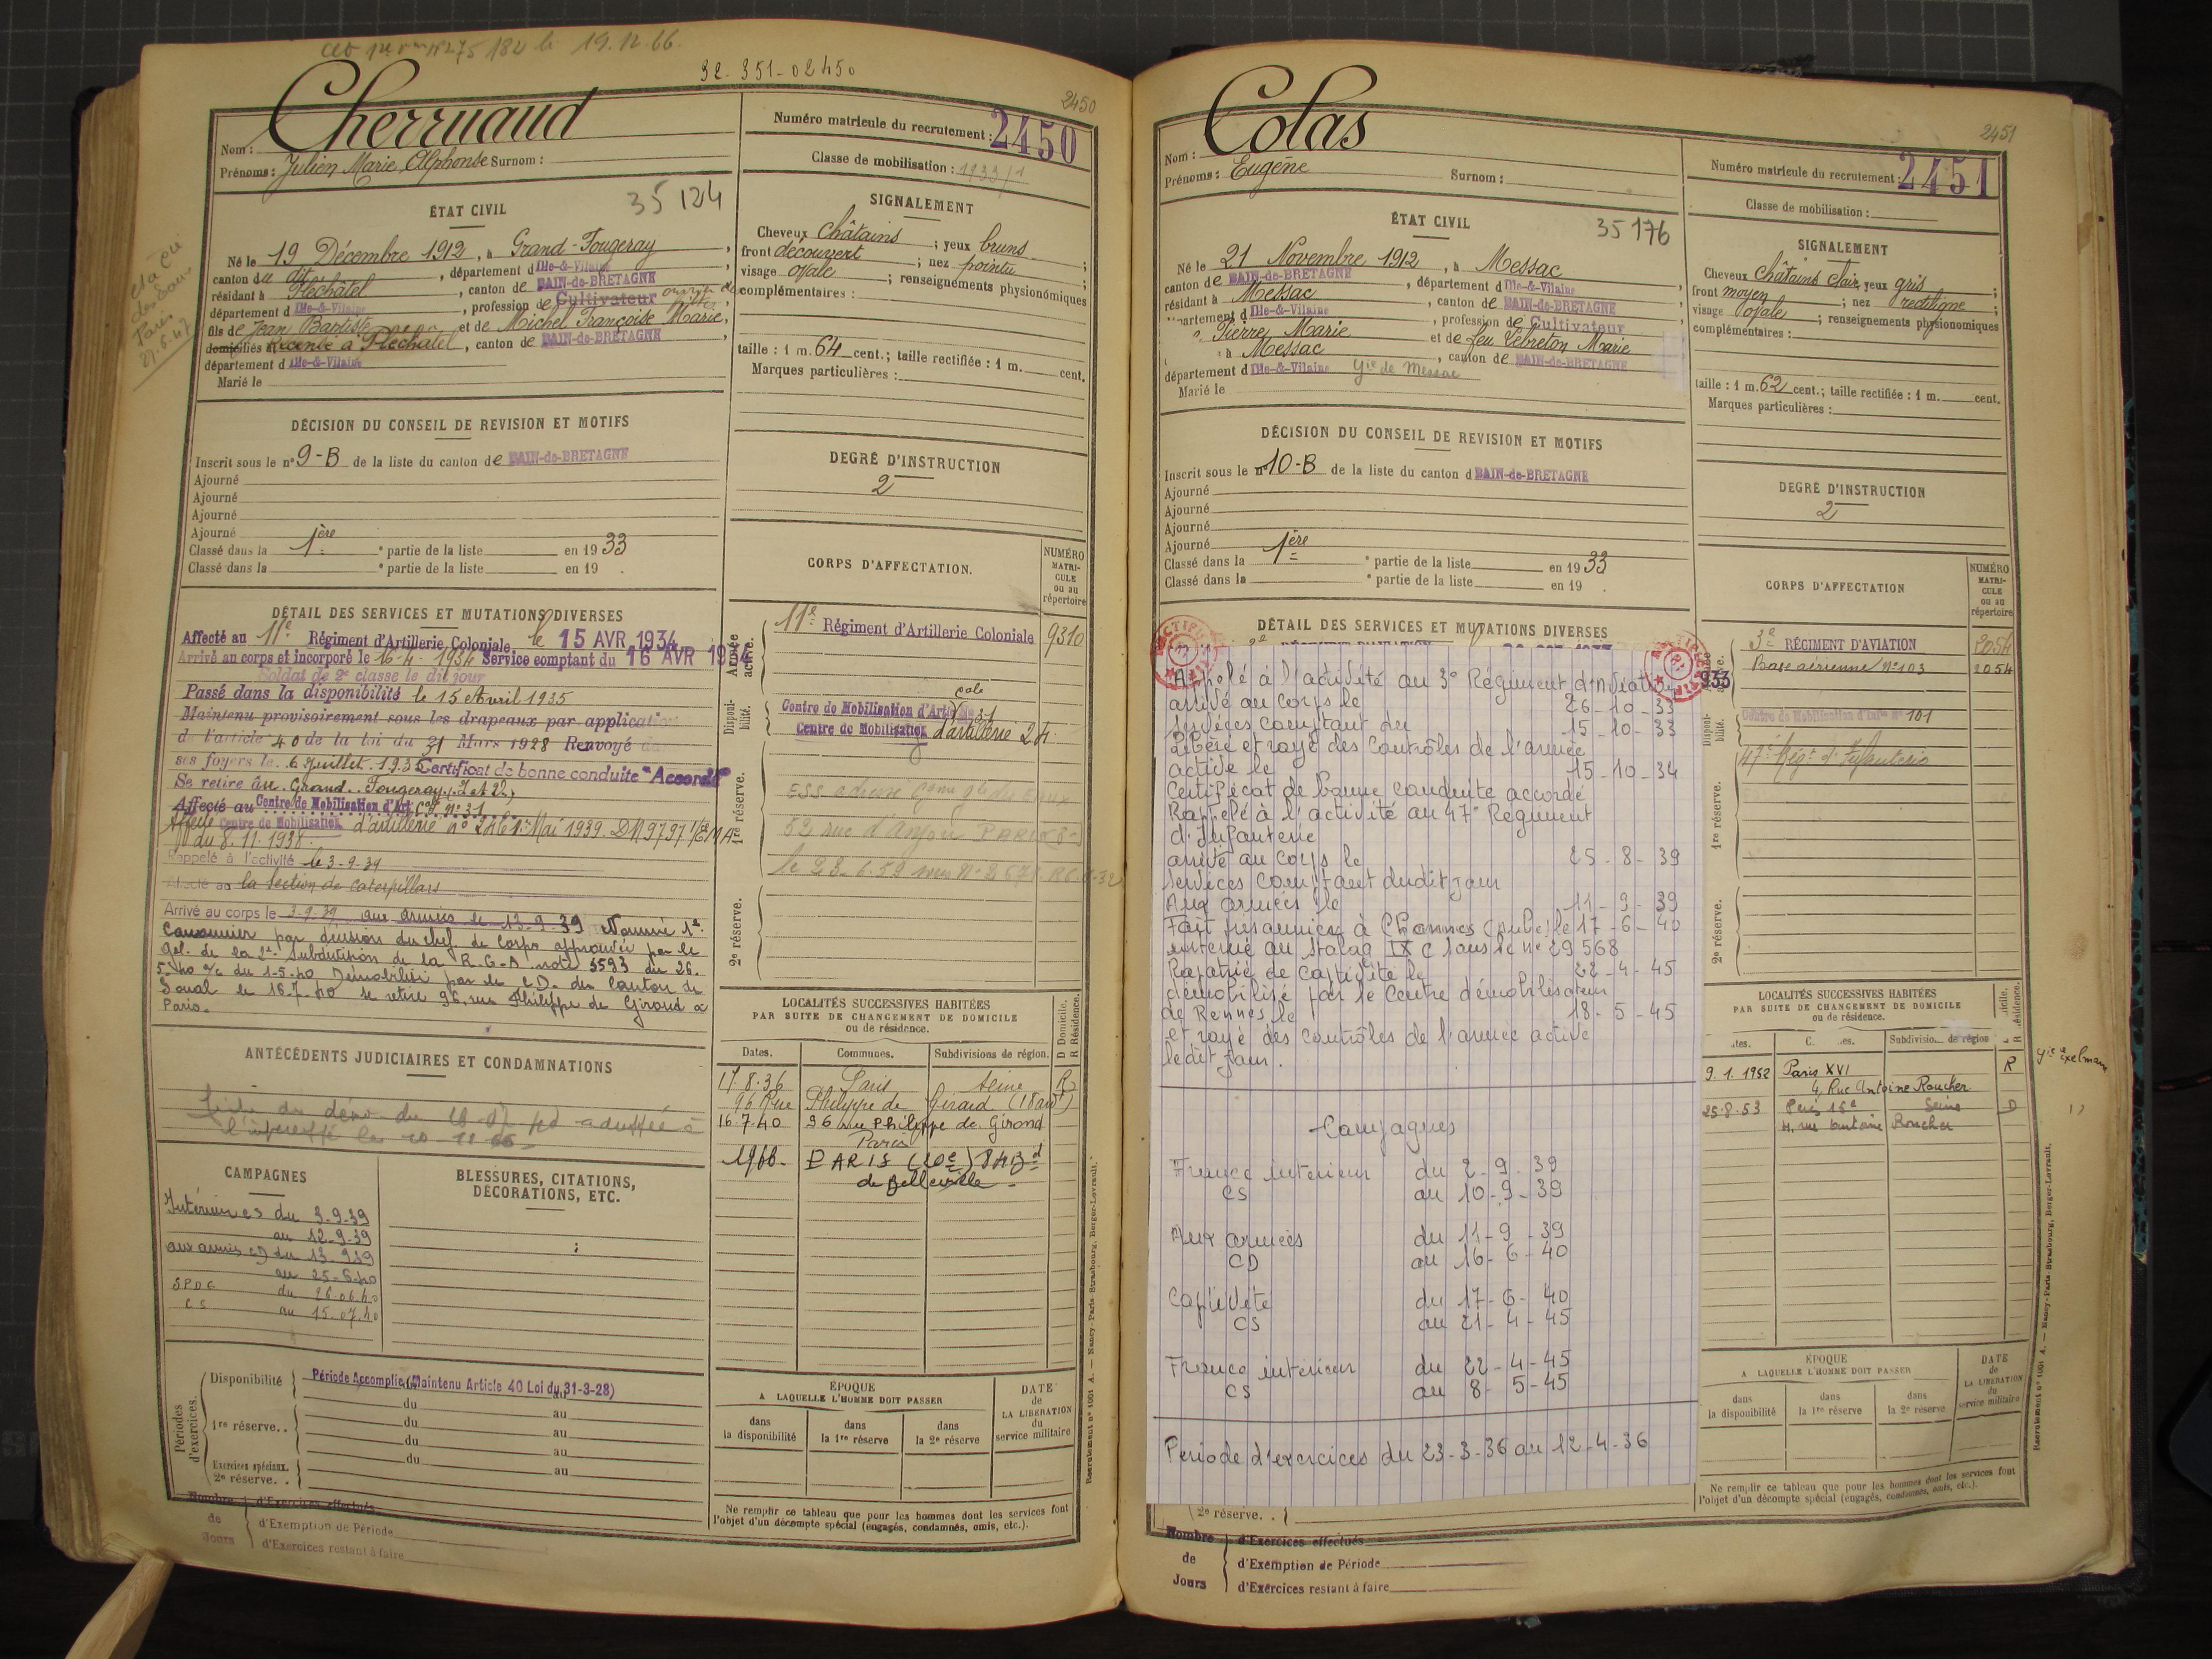 19.12.66.
32-351-02450
2450
Cherruaud
Nom :
Prénoms : Julien Marie Alphonse Surnom :
Numéro matricule du recrutement : 2450
Classe de mobilisation : 1933/1
ÉTAT CIVIL
35124
Né le 19 Décembre 1912, à Grand-Fougeray,
canton du dit, département d Ille-&-Vilaine
résidant à Pléchâtel, canton de BAIN-de-BRETAGNE
département d Ille-&-Vilaine, profession de Cultivateur
fils de Jean Baptiste et de Michel Françoise Marie,
domiciliés Recensé à Pléchatel, canton de BAIN-de-BRETAGNE
département d Ille-&-Vilaine
Marié le
Paris
27.6.47
SIGNALEMENT
Cheveux châtains ; yeux bruns ;
front découvert ; nez pointu ;
visage ovale ; renseignements physionomiques
complémentaires :
taille : 1 m. 64 cent.; taille rectifiée : 1 m. cent.
Marques particulières :
DÉCISION DU CONSEIL DE REVISION ET MOTIFS
Inscrit sous le n° 9-B de la liste du canton de BAIN-de-BRETAGNE
Ajourné
Ajourné
Ajourné
Ajourné
Classé dans la 1ère partie de la liste en 1933
Classé dans la partie de la liste en 19 .
DEGRÉ D'INSTRUCTION
2
DÉTAIL DES SERVICES ET MUTATIONS DIVERSES
Affecté au 11e Régiment d'Artillerie Coloniale le 15 AVR 1934
Arrivé au corps et incorporé le 16-4-1934 Service comptant du 16 AVR 1934
Soldat de 2e classe le dit jour
Passé dans la disponibilité le 15 Avril 1935
Maintenu provisoirement sous les drapeaux par application
de l'article 40 de la loi du 31 Mars 1928 Renvoyé dans
ses foyers le 6 Juillet 1935 Certificat de bonne conduite "Accordé"
Se retire au Grand-Fougeray (I et V)
Affecté au Centre de Mobilisation d'Art Cole N° 31
Affecté Centre de Mobilisation d'artillerie n° 24 le 1er Mai 1939. DM 9797 1/EMA
du 8.11.1938.
Rappelé à l'activité le 3-9-39
Affecté au la Section de Caterpillars
Arrivé au corps le 3-9-39 aux armées le 13-9-39 Nommé 1er
Canonnier par décision du chef de Corps approuvée par le
Gel. de la 2e Subdivision de la R.G.A note 5593 du 26.
5-40 du 1-5-40 Démobilisé par le CD. du Canton de
Soual le 16-7-40 se retire 96 rue Philippe de Girond à
Paris.
CORPS D'AFFECTATION.
NUMÉRO MATRICULE ou au répertoire
Armée active.
11e Régiment d'Artillerie Coloniale 9310
Disponibilité.
Centre de Mobilisation d'Artie cole N° 31
Centre de Mobilisation d'artillerie 24.
1re réserve.
ESS adresse
52 rue d'Anjou PARIS 8
2e réserve.
ANTÉCÉDENTS JUDICIAIRES ET CONDAMNATIONS
LOCALITÉS SUCCESSIVES HABITÉES
PAR SUITE DE CHANGEMENT DE DOMICILE
ou de résidence.
D Domicile. R Résidence.
Dates. Communes. Subdivisions de région.
17.8.36 Paris Seine R
96 Rue Philippe de Girard (18 ardt)
16.7.40 96 rue Philippe de Girond
Paris
1966- PARIS (20e) 84 Bd
de Belleville -
CAMPAGNES
Intérieur CS du 3-9-39
au 12-9-39
aux armées CD du 13-9-39
au 25-6-40
S.P.D.G du 26.06.40
CS au 15-07-40
BLESSURES, CITATIONS,
DÉCORATIONS, ETC.
Périodes d'exercices.
Disponibilité Période Accomplie (Maintenu Article 40 Loi du 31-3-28)
du au
1re réserve. . du au
du au
du au
Exercices spéciaux.
2e réserve. .
Nombre de Jours
d'Exercices effectués
d'Exemption de Période
d'Exercices restant à faire
ÉPOQUE
A LAQUELLE L'HOMME DOIT PASSER
dans la disponibilité
dans la 1re réserve
dans la 2e réserve
DATE de LA LIBERATION du service militaire
Ne remplir ce tableau que pour les hommes dont les services font
l'objet d'un décompte spécial (engagés, condamnés, omis, etc.).
Recrutement n° 1001 A. — Nancy-Paris-Strasbourg, Berger-Levrault.
2451
Colas
Nom :
Prénoms : Eugène Surnom :
Numéro matricule du recrutement : 2451
Classe de mobilisation :
ÉTAT CIVIL
35176
Né le 21 Novembre 1912, à Messac
canton de BAIN-de-BRETAGNE, département d Ille-&-Vilaine
résidant à Messac, canton de BAIN-de-BRETAGNE
département d Ille-&-Vilaine, profession de Cultivateur
Pierre Marie et de feu Lebreton Marie
à Messac, canton de BAIN-de-BRETAGNE
département d Ille-&-Vilaine Gie de Messac
Marié le
SIGNALEMENT
Cheveux châtains clair, yeux gris ;
front moyen ; nez rectiligne ;
visage ovale ; renseignements physionomiques
complémentaires :
taille : 1 m. 62 cent.; taille rectifiée : 1 m. cent.
Marques particulières :
DÉCISION DU CONSEIL DE REVISION ET MOTIFS
Inscrit sous le n° 10-B de la liste du canton d BAIN-de-BRETAGNE
Ajourné
Ajourné
Ajourné
Ajourné
Classé dans la 1ère partie de la liste en 1933
Classé dans la partie de la liste en 19 .
DEGRÉ D'INSTRUCTION
2
DÉTAIL DES SERVICES ET MUTATIONS DIVERSES
Appelé à l'activité au 3e Régiment d'Aviation
arrivé au corps le 26-10-33
Services comptant du 15-10-33
Libéré et rayé des contrôles de l'armée
active le 15-10-34
Certificat de bonne conduite accordé
Rappelé à l'activité au 47e Régiment
d'Infanterie
arrivé au corps le 25-8-39
Services comptant dudit jour
Aux armées le 11-9-39
Fait prisonnier à Channes (Aube) le 17-6-40
interné au stalag IX C sous le n° 29568
Rapatrié de captivité le 22-4-45
démobilisé par le Centre démobilisateur
de Rennes le 18-5-45
et rayé des contrôles de l'armée active
ledit jour.
Campagnes
France intérieur du 2-9-39
CS au 10-9-39
Aux armées du 11-9-39
CD au 16-6-40
Captivité du 17-6-40
CS au 21-4-45
France intérieur du 22-4-45
CS au 8-5-45
Période d'exercices du 23-3-36 au 12-4-36
CORPS D'AFFECTATION
NUMÉRO MATRICULE ou au répertoire
3e RÉGIMENT D'AVIATION 2054
Base aérienne N° 103 2054
Disponibilité.
Centre de Mobilisation d'Infie N° 101
1re réserve.
47e Régt d'Infanterie
2e réserve.
LOCALITÉS SUCCESSIVES HABITÉES
PAR SUITE DE CHANGEMENT DE DOMICILE
ou de résidence.
9.1.1952 Paris XVI R
4, Rue Antoine Roucher
25.8.53 Paris 16e Seine D
4, rue Antoine Roucher
Gie Exelmans
ÉPOQUE
A LAQUELLE L'HOMME DOIT PASSER
dans la disponibilité
dans la 1re réserve
dans la 2e réserve
DATE de LA LIBERATION du service militaire
Ne remplir ce tableau que pour les hommes dont les services font
l'objet d'un décompte spécial (engagés, condamnés, omis, etc.).
2e réserve. .
Nombre de Jours
d'Exercices effectués
d'Exemption de Période
d'Exercices restant à faire
Recrutement n° 1001 A. — Nancy-Paris-Strasbourg, Berger-Levrault.